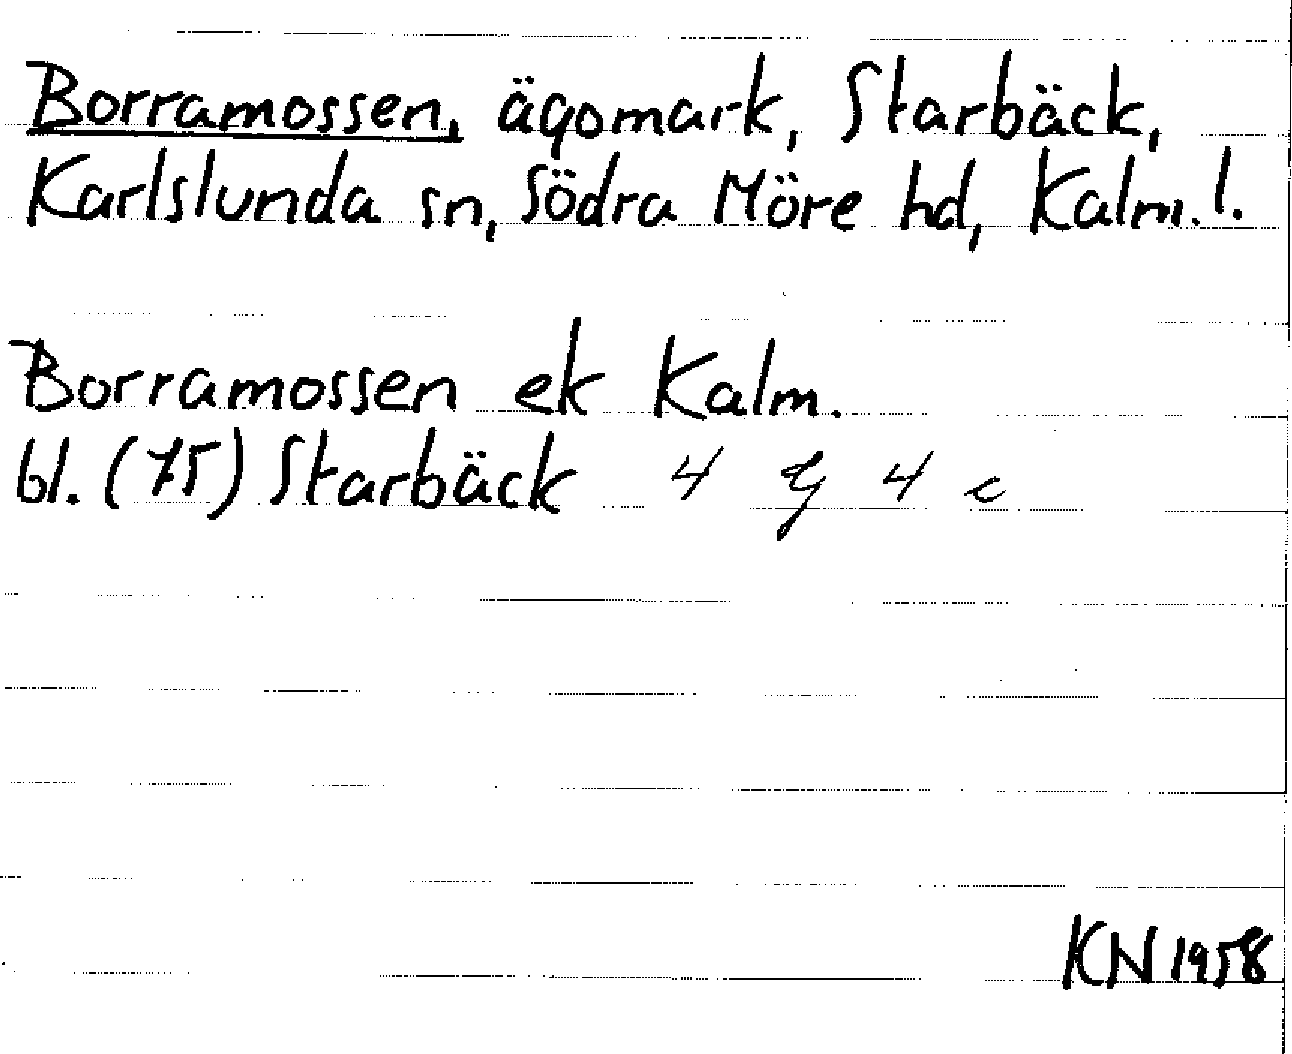 Borramossen, ägomark, Starbäck,
Karlslunda sn, Södra Möre hd, Kalm. l.
Borramossen ek Kalm.
bl. (75) Starbäck 4 G 4 c
KN 1958